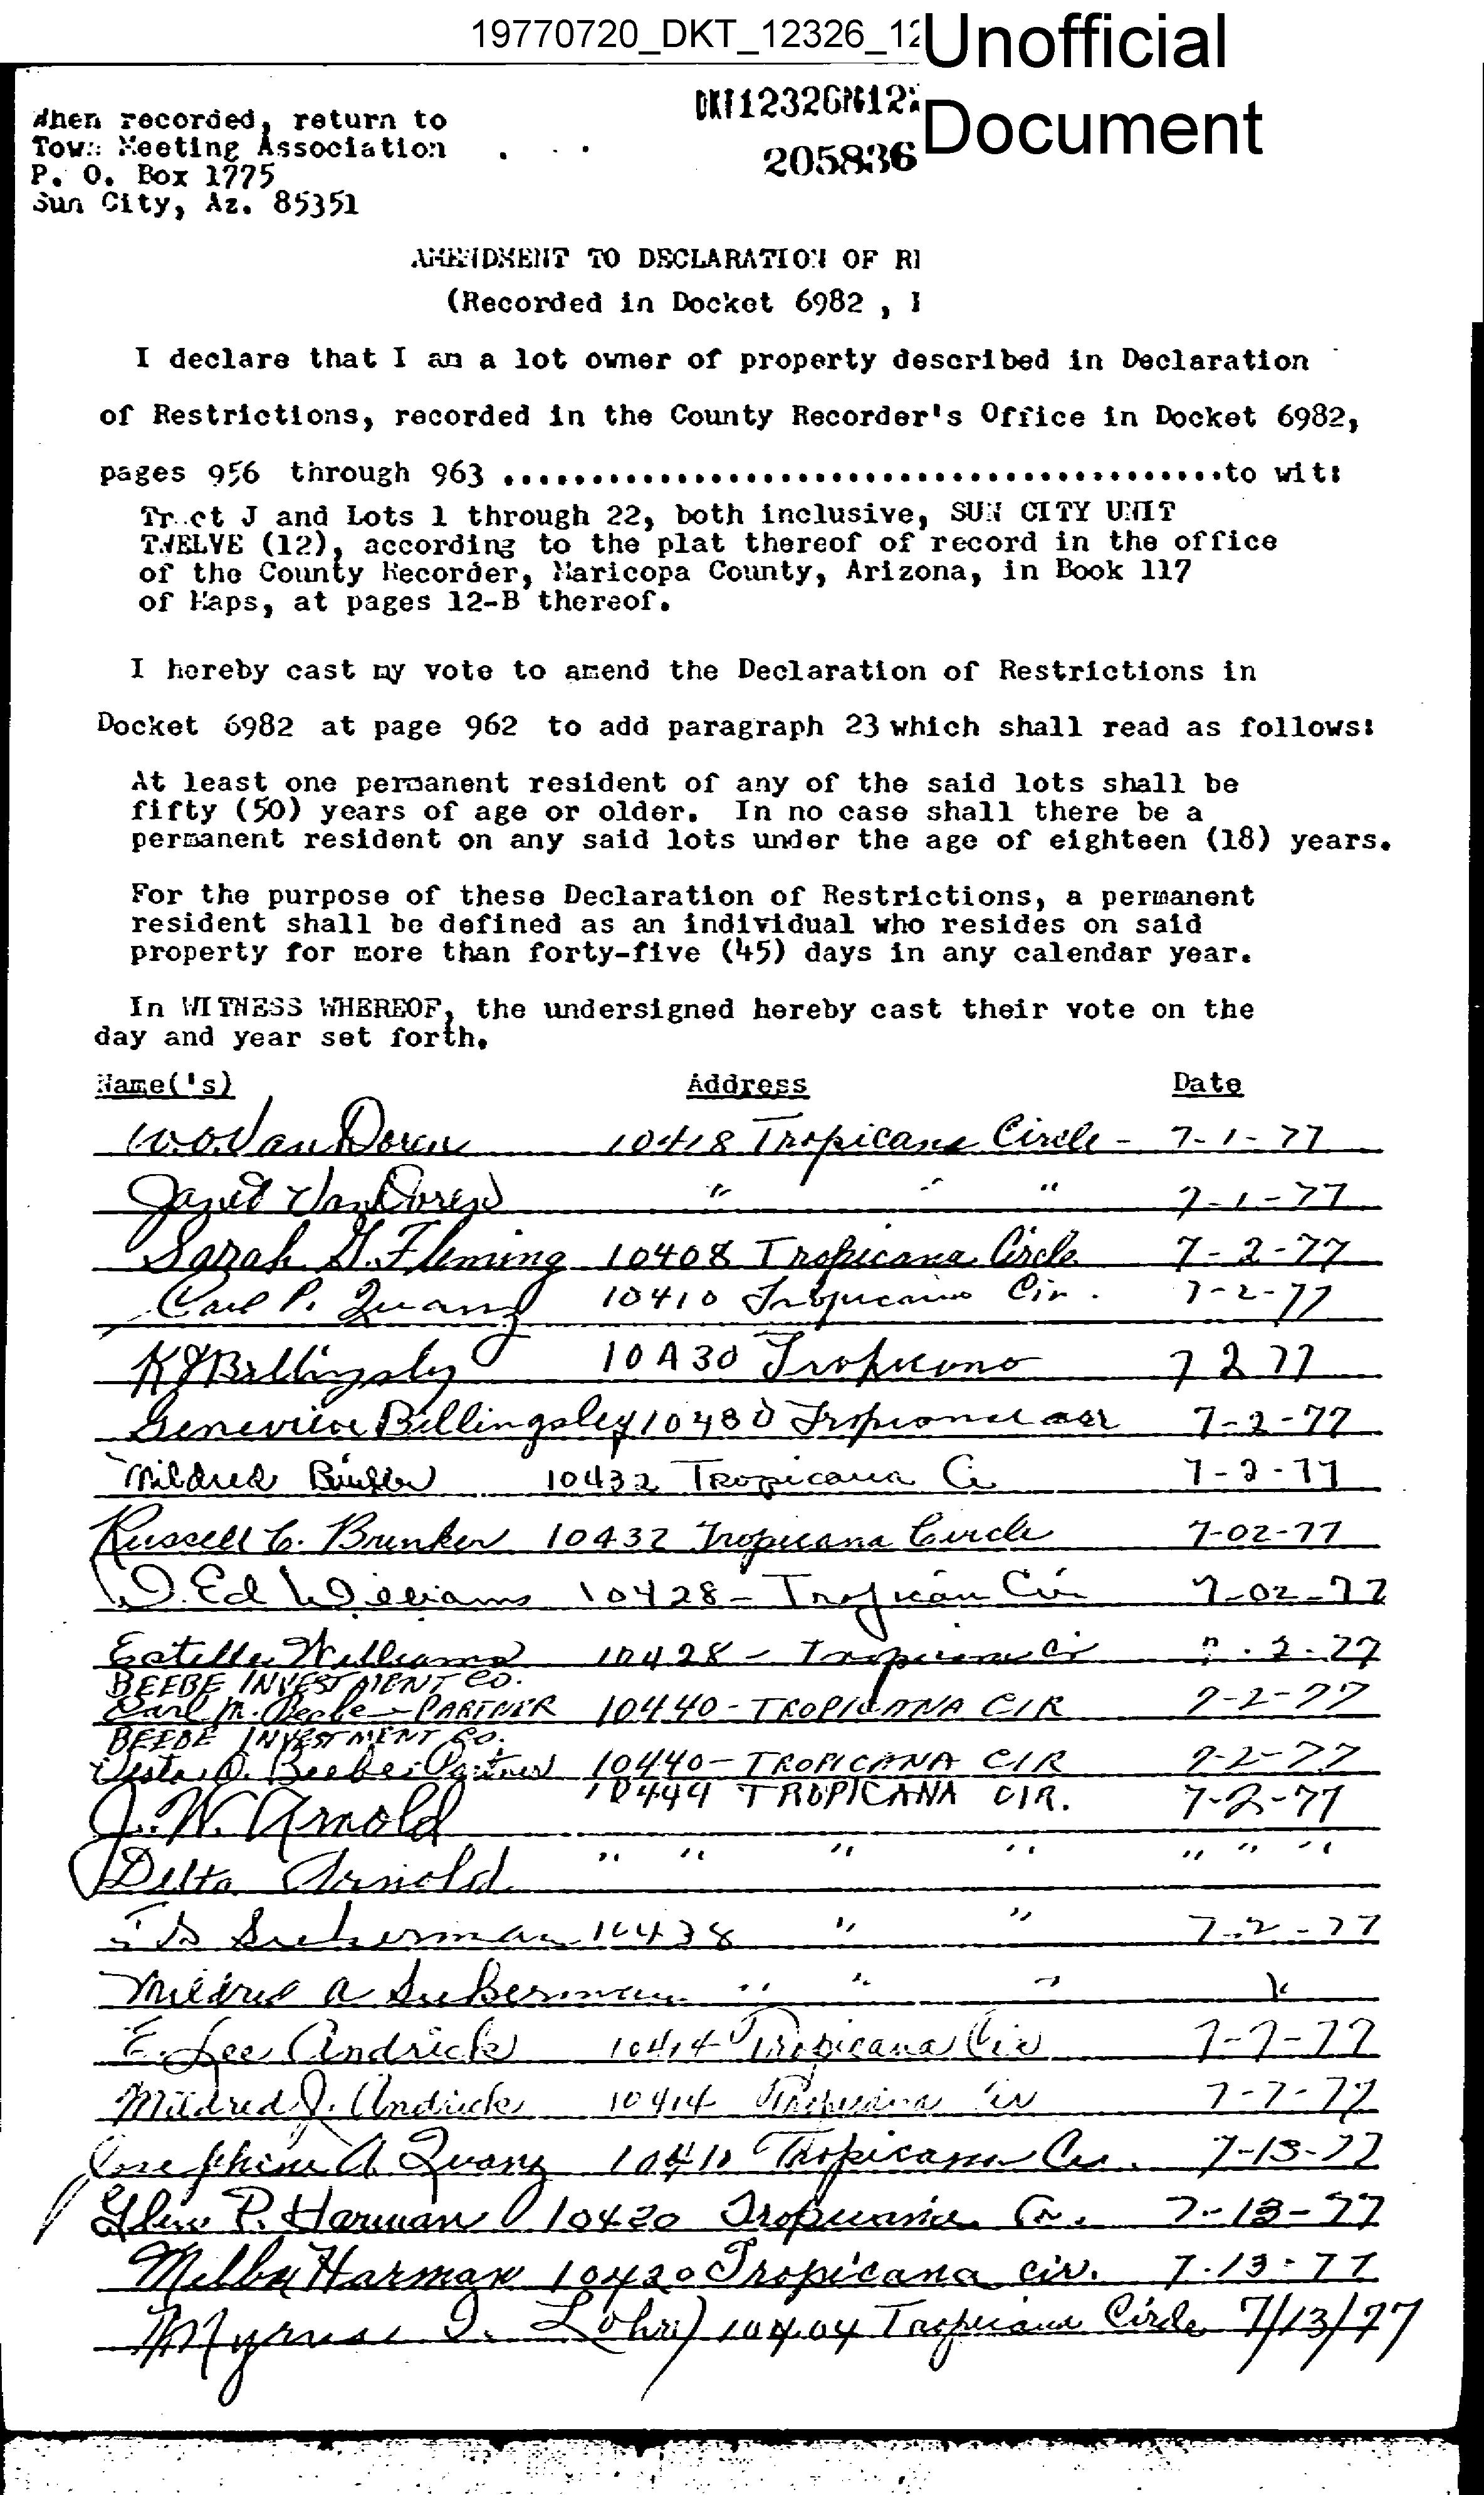 19770720_DKT_12326_12
Unofficial
Document
DKT12326PG12
205836
When recorded, return to
Town Meeting Association
P. O. Box 1775
Sun City, Az. 85351
AMENDMENT TO DECLARATION OF RE
(Recorded in Docket 6982 ,
I declare that I am a lot owner of property described in Declaration
of Restrictions, recorded in the County Recorder's Office in Docket 6982,
pages 956 through 963 ..........................................to wit:
Tract J and Lots 1 through 22, both inclusive, SUN CITY UNIT
TWELVE (12), according to the plat thereof of record in the office
of the County Recorder, Maricopa County, Arizona, in Book 117
of Maps, at pages 12-B thereof.
I hereby cast my vote to amend the Declaration of Restrictions in
Docket 6982 at page 962 to add paragraph 23 which shall read as follows:
At least one permanent resident of any of the said lots shall be
fifty (50) years of age or older. In no case shall there be a
permanent resident on any said lots under the age of eighteen (18) years.
For the purpose of these Declaration of Restrictions, a permanent
resident shall be defined as an individual who resides on said
property for more than forty-five (45) days in any calendar year.
In WITNESS WHEREOF, the undersigned hereby cast their vote on the
day and year set forth.
Name('s) Address Date
W.O. Van Doren 10418 Tropicana Circle - 7-1-77
Janet Van Doren " " " 7-1-77
Sarah G. Fleming 10408 Tropicana Circle 7-2-77
Carl P. Quanz 10410 Tropicana Cir. 7-2-77
K J Billingsley 10430 Tropicana 7 2 77
Genevieve Billingsley 10430 7-2-77
Mildred 10432 Tropicana Ci 7-2-77
Russell C. Brunker 10432 Tropicana Circle 7-02-77
W. Ed Williams 10428 - Tropican Cir 7-02-77
Estelle Williams 10428 - Tropicana Cir 7-2-77
BEEBE INVESTMENT CO.
Earl M. Beebe - PARTNER 10440 - TROPICANA CIR 7-2-77
BEEBE INVESTMENT CO.
Vesta O. Beebe Partner 10440 - TROPICANA CIR 7-2-77
J. W. Arnold 10444 TROPICANA CIR. 7-2-77
Delta Arnold " " " " " " "
Suckerman 10438 " " 7-2-77
Mildred A Suckerman " " " "
E. Lee Andrick 10414 Tropicana Cir 7-7-77
Mildred J. Andrick 10414 Tropicana Cir 7-7-77
Josephine A Quanz 10410 Tropicana Cir. 7-13-77
Glen P. Harman 10420 Tropicana Cir. 7-13-77
Melba Harman 10420 Tropicana cir. 7-13-77
Lohr 10404 Tropicana Circle 7/13/77